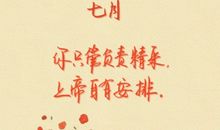 七月
你只管负责精采，
上帝自有安排．